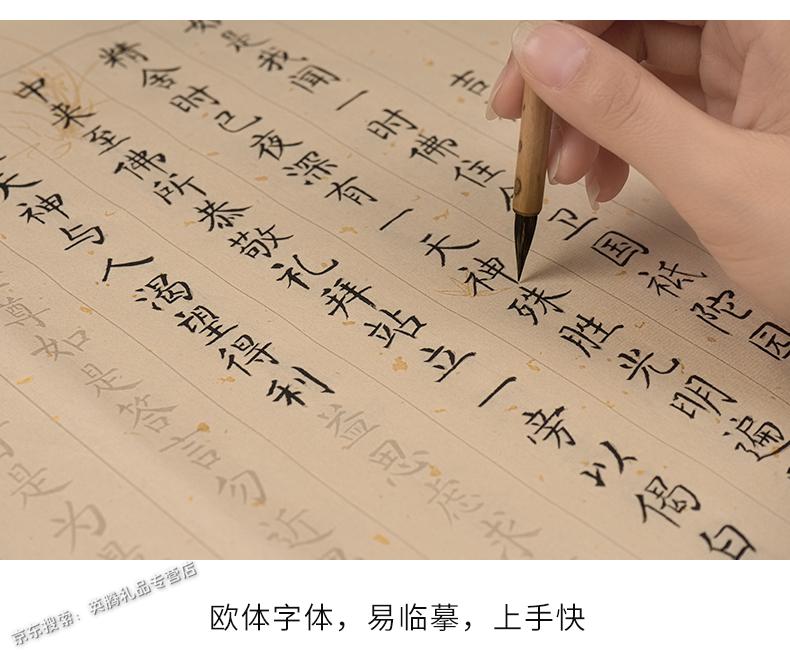 吉
如是我闻一时佛住卫国祇陀园
精舍时已夜深有一天神殊胜光明遍
中来至佛所恭敬礼拜站立一旁以偈白
天神与人渴望得利益思虑求
尊如是答言勿近
是为
欧体字体，易临摹，上手快
京东搜索：英腾礼品专营店